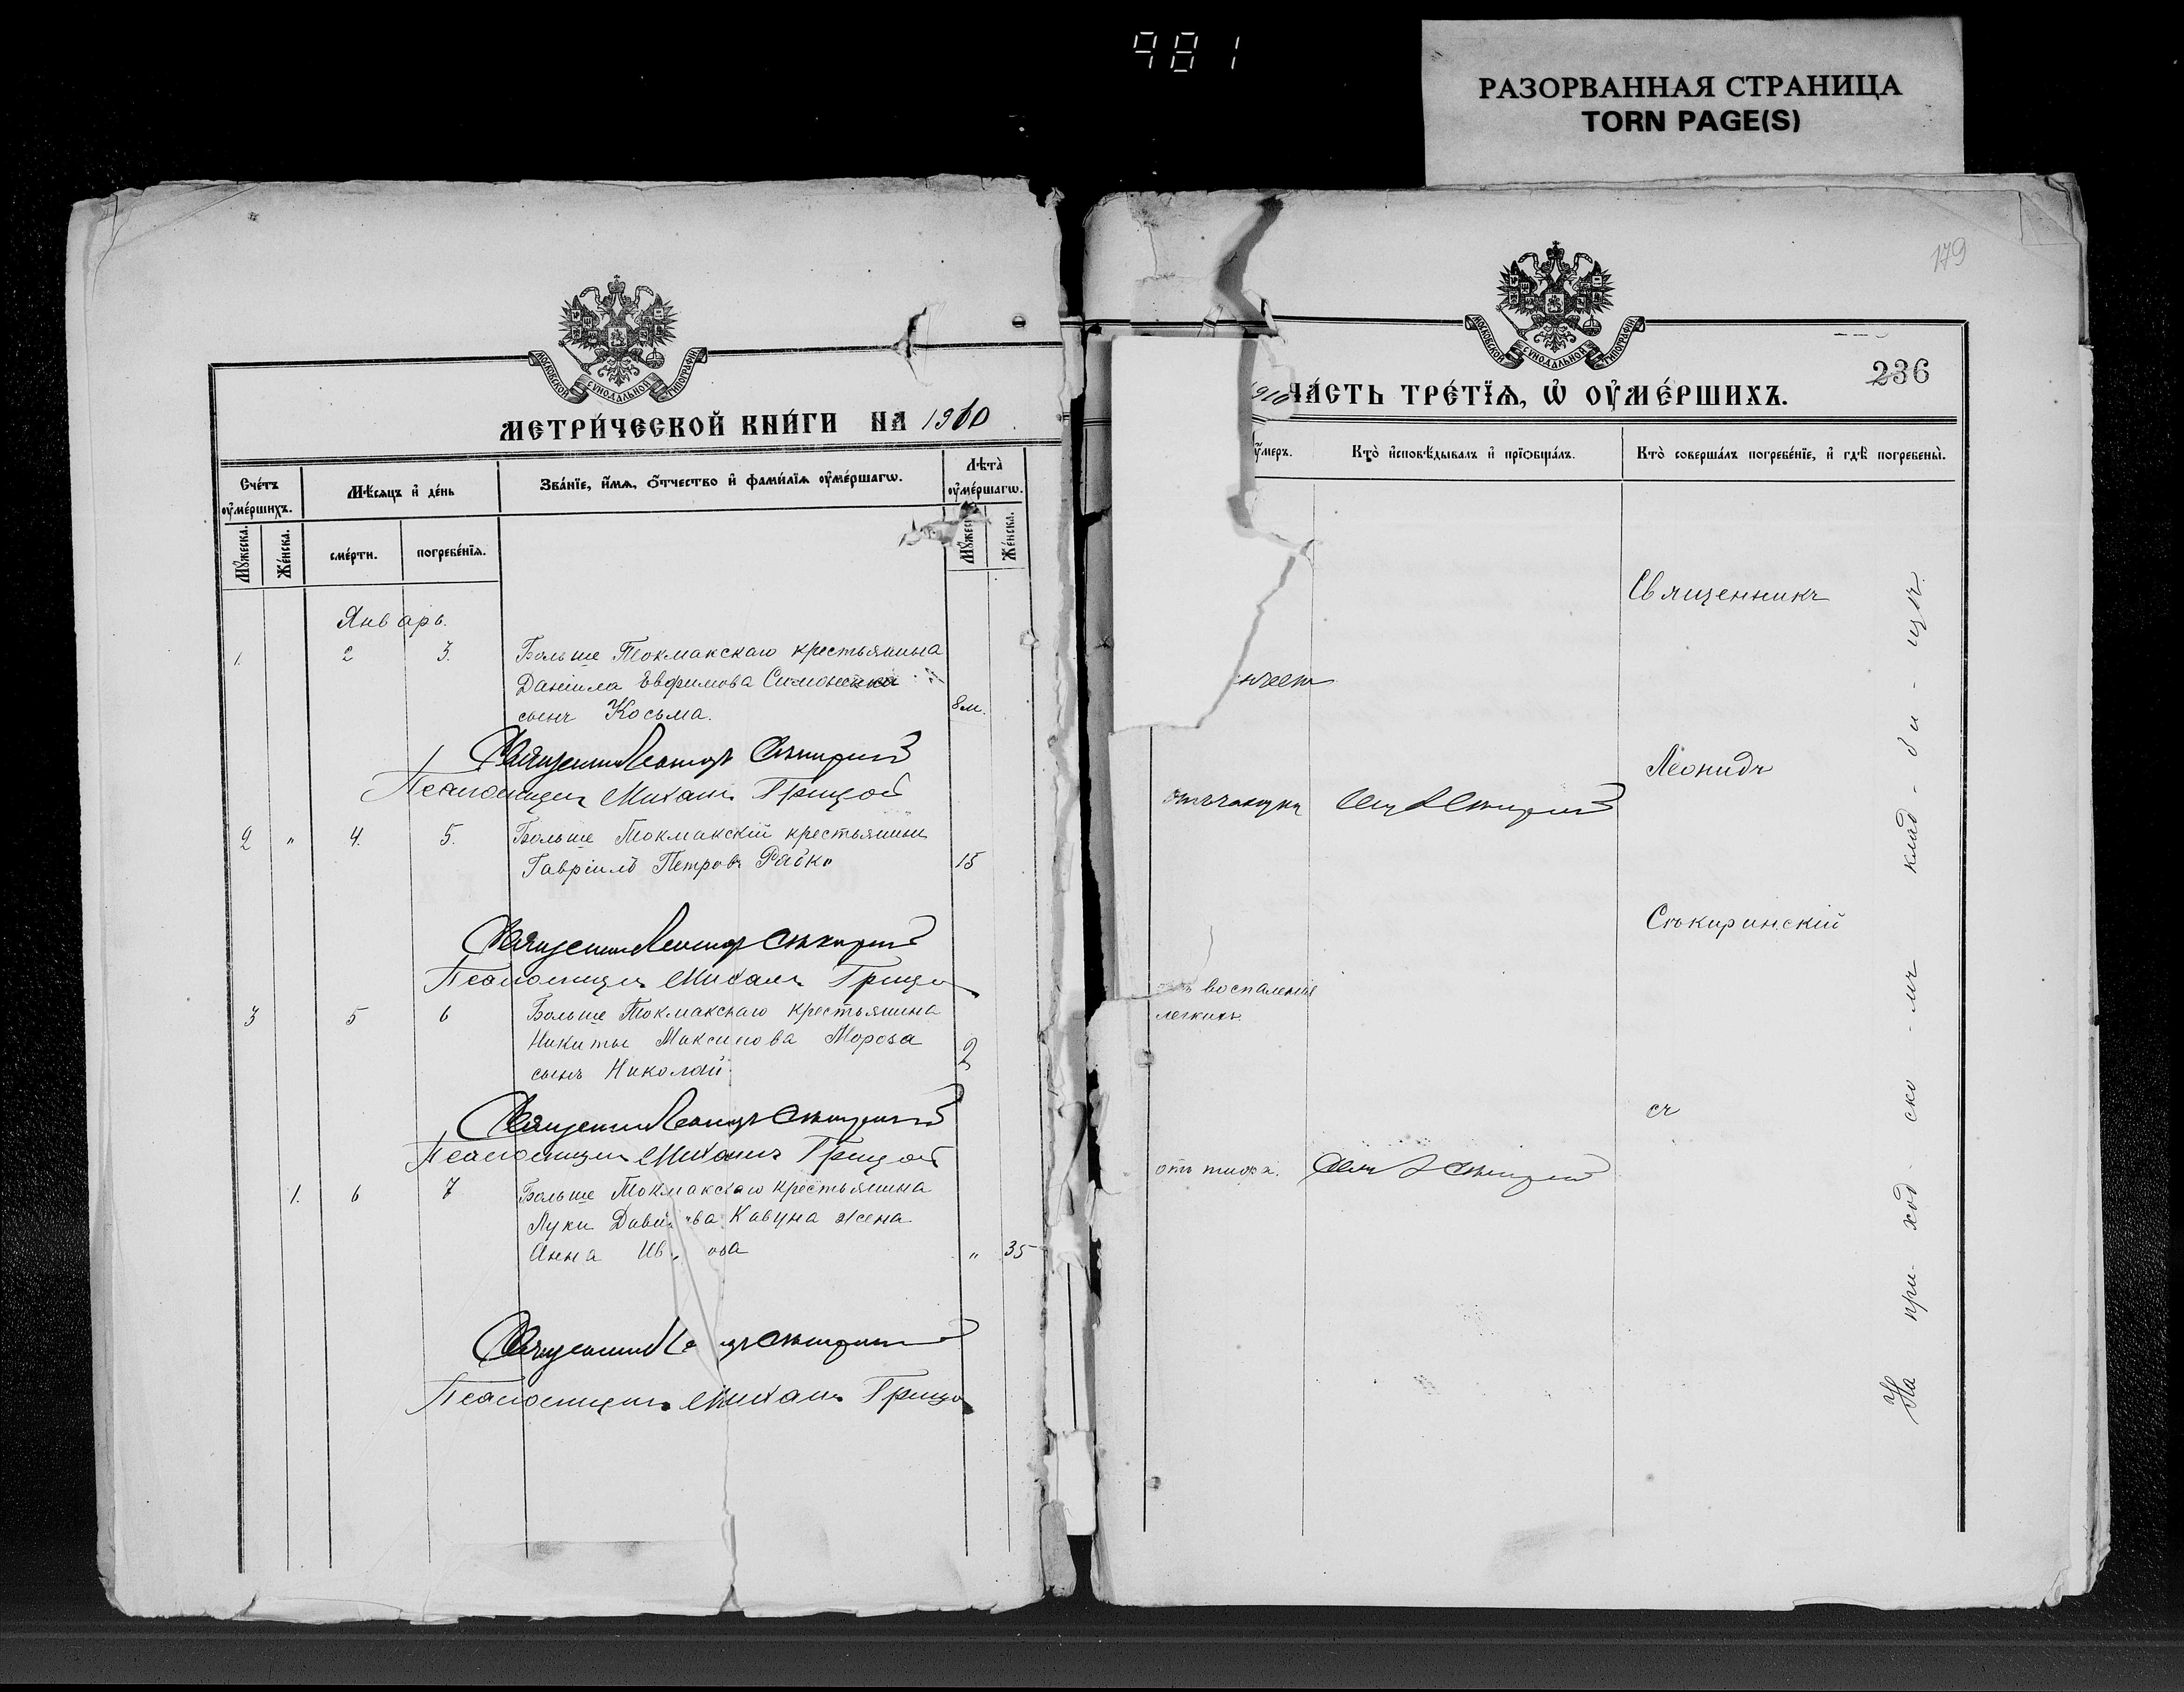 981
РАЗОРВАННАЯ СТРАНИЦА
TORN PAGE(S)
179
МОСКОВСКОЙ СѴНОДАЛЬНОЙ ТИПОГРАФІИ
МЕТРИ́ЧЕСКОЙ КНИ́ГИ НА 1910
Сче́тъ оу҆ме́ршихъ.
Мѣ́сяцъ и҆ де́нь
Зва́нїе, и҆́мѧ, ѻ҆́тчество и҆ фами́лїѧ оу҆ме́ршагѡ.
Лѣта̀ оу҆ме́ршагѡ.
Мꙋ́жеска.
Же́нска.
сме́рти.
погребе́нїѧ.
Мꙋжес
Же́нска.
Январь.
1. 2 3. Больше Токмакскаго крестьянина
Даніила Евфимова Симоненка
сынъ Косьма. 8 м.
Священникъ Леонидъ Сѣкиринскій
Псаломщикъ Михаилъ Грицай
2 " 4. 5. Больше Токмакскій крестьянинъ
Гавріилъ Петровъ Рябко 15
Священникъ Леонидъ Сѣкиринскій
Псаломщикъ Михаилъ Грицай
3 5 6 Больше Токмакскаго крестьянина
Никиты Максимова Мороза 2
сынъ Николай.
Священникъ Леонидъ Сѣкиринскій
Псаломщикъ Михаилъ Грицай
1. 6 7 Больше Токмакскаго крестьянина
Луки Дави ва Кавуна жена
Анна Ив ова " 35
Священникъ Ле дъ Сѣкиринскій
Псаломщикъ Михаилъ Грицай
МОСКОВСКОЙ СѴНОДАЛЬНОЙ ТИПОГРАФІИ
236
1910
ЧА́СТЬ ТРЕ́ТЇѦ, Ѡ҆ ОУ҆МЕ́РШИХЪ.
оу҆́меръ.
Кто̀ и҆сповѣ́дывалъ и҆ прїѻбща́лъ.
Кто̀ соверша́лъ погребе́нїе, и҆ гдѣ̀ погребены̀.
Священникъ
Леонидъ
отъ чахотки Свящ. Л Сѣкиринскій
Сѣкиринскій
отъ воспаленія
легкихъ.
съ
отъ тифа. Свящ. Л Сѣкиринскій
На при- ход- ско- мъ клад- би- щѣ.